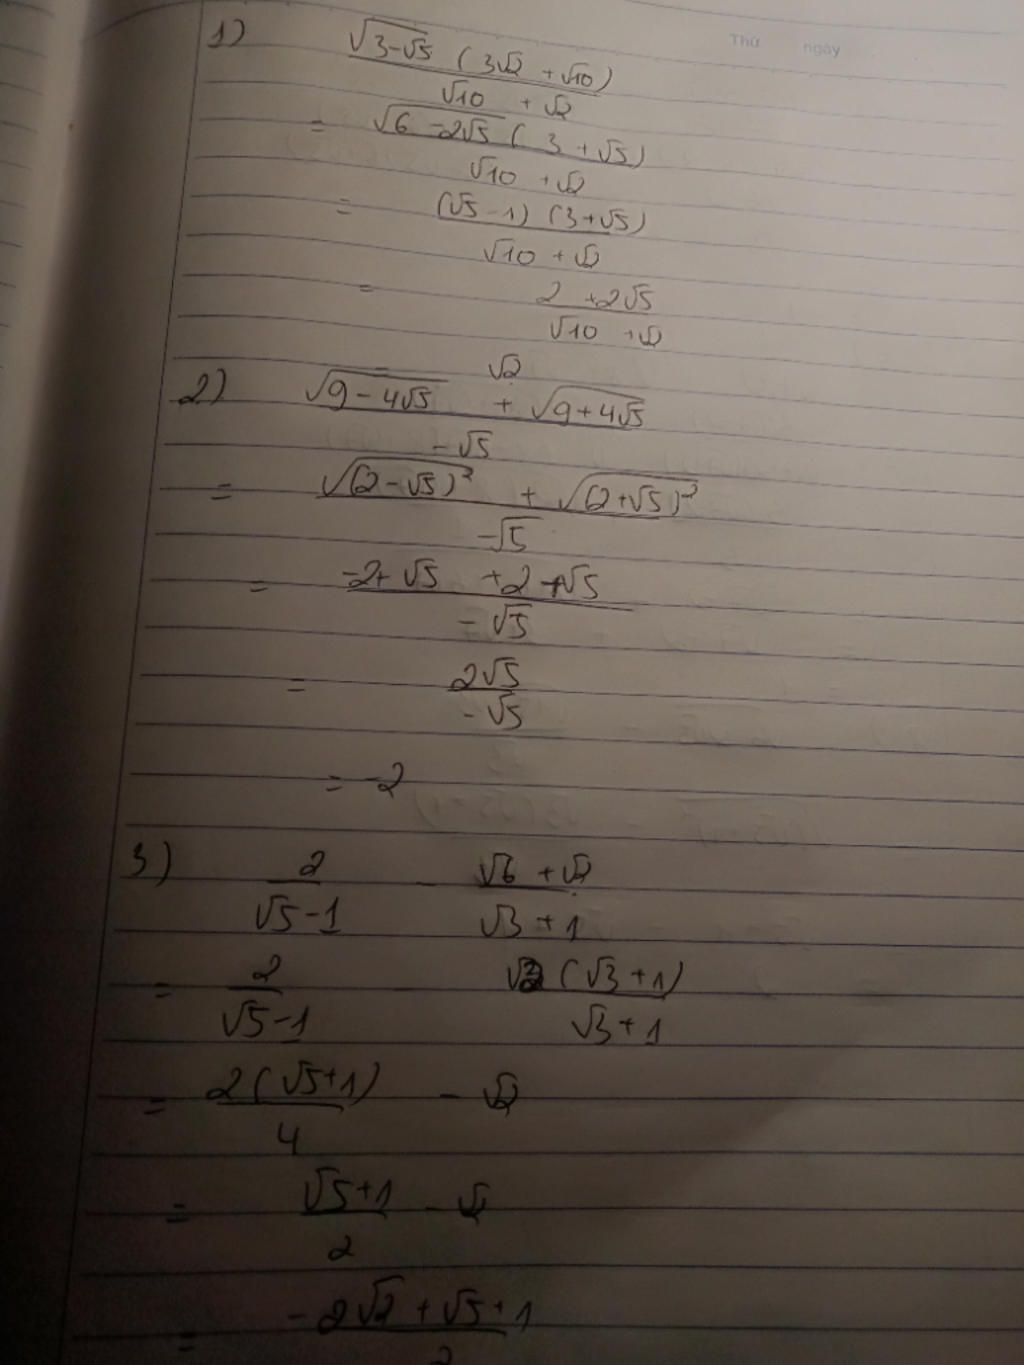 Thứ ngày
1) √(3-√5) (3√2 + √10)
√10 + √2
= √(6 - 2√5) (3 + √5)
√10 + √2
= (√5 - 1) (3 + √5)
√10 + √2
= 2 + 2√5
√10 + √2
= √2
2) √(9 - 4√5) + √(9 + 4√5)
- √5
= √(2 - √5)² + √(2 + √5)²
- √5
= -2 + √5 + 2 + √5
- √5
= 2√5
- √5
= -2
3) 2 - √6 + √2
√5 - 1 √3 + 1
= 2 √2 (√3 + 1)
√5 - 1 √3 + 1
= 2 (√5 + 1) - √2
4
= √5 + 1 - √2
2
= -2√2 + √5 + 1
2